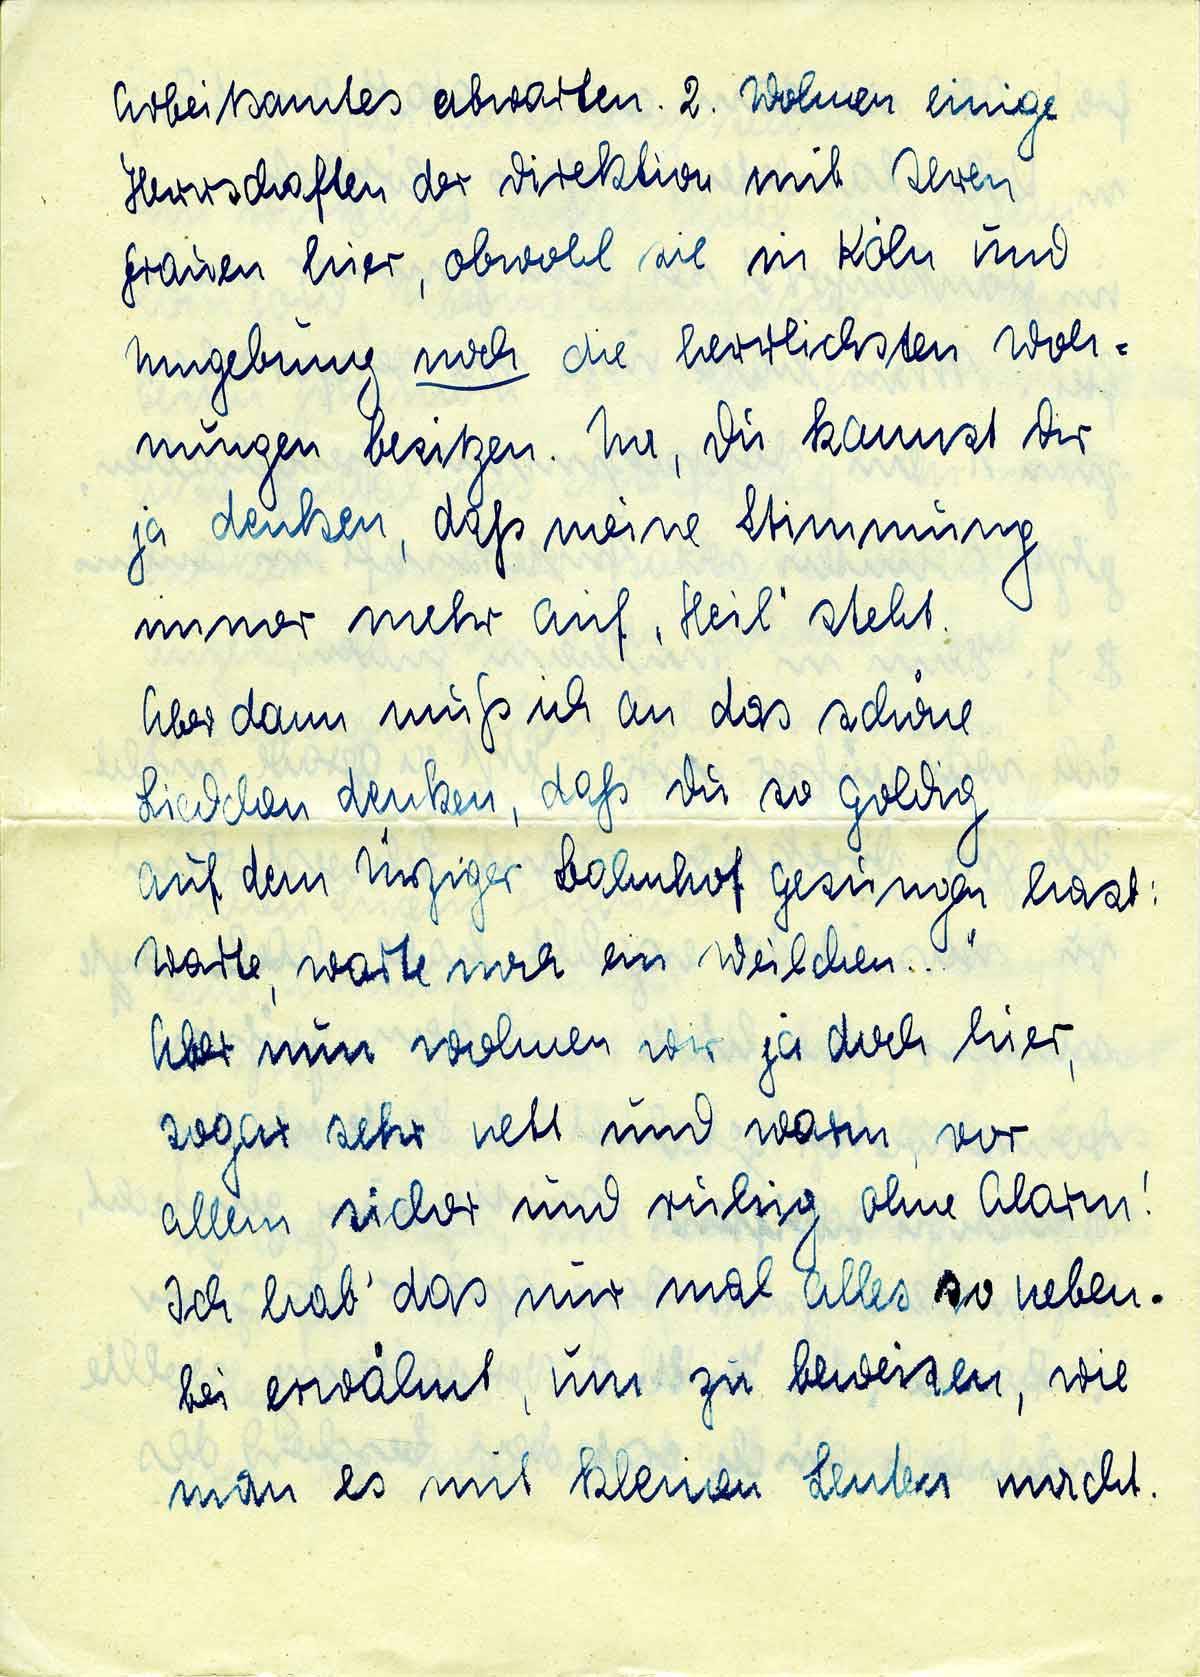 Arbeitsamtes abwarten. 2. Wohnen einige
Herrschaften der Direktion mit ihren
Frauen hier, obwohl sie in Köln und
Umgebung noch die herrlichsten Woh=
nungen besitzen. Na, Du kannst Dir
ja denken, daß meine Stimmung
immer mehr auf „Heil" steht.
Aber dann muß ich an das schöne
Liedchen denken, daß Du so goldig
auf dem Ürziger Bahnhof gesungen hast:
Warte, warte noch ein Weilchen..."
Aber nun wohnen wir ja doch hier,
sogar sehr nett und warm, vor
allem sicher und ruhig ohne Alarm!
Ich hab' das nur mal alles so neben-
bei erwähnt, um zu beweisen, wie
man es mit kleinen Leuten macht.